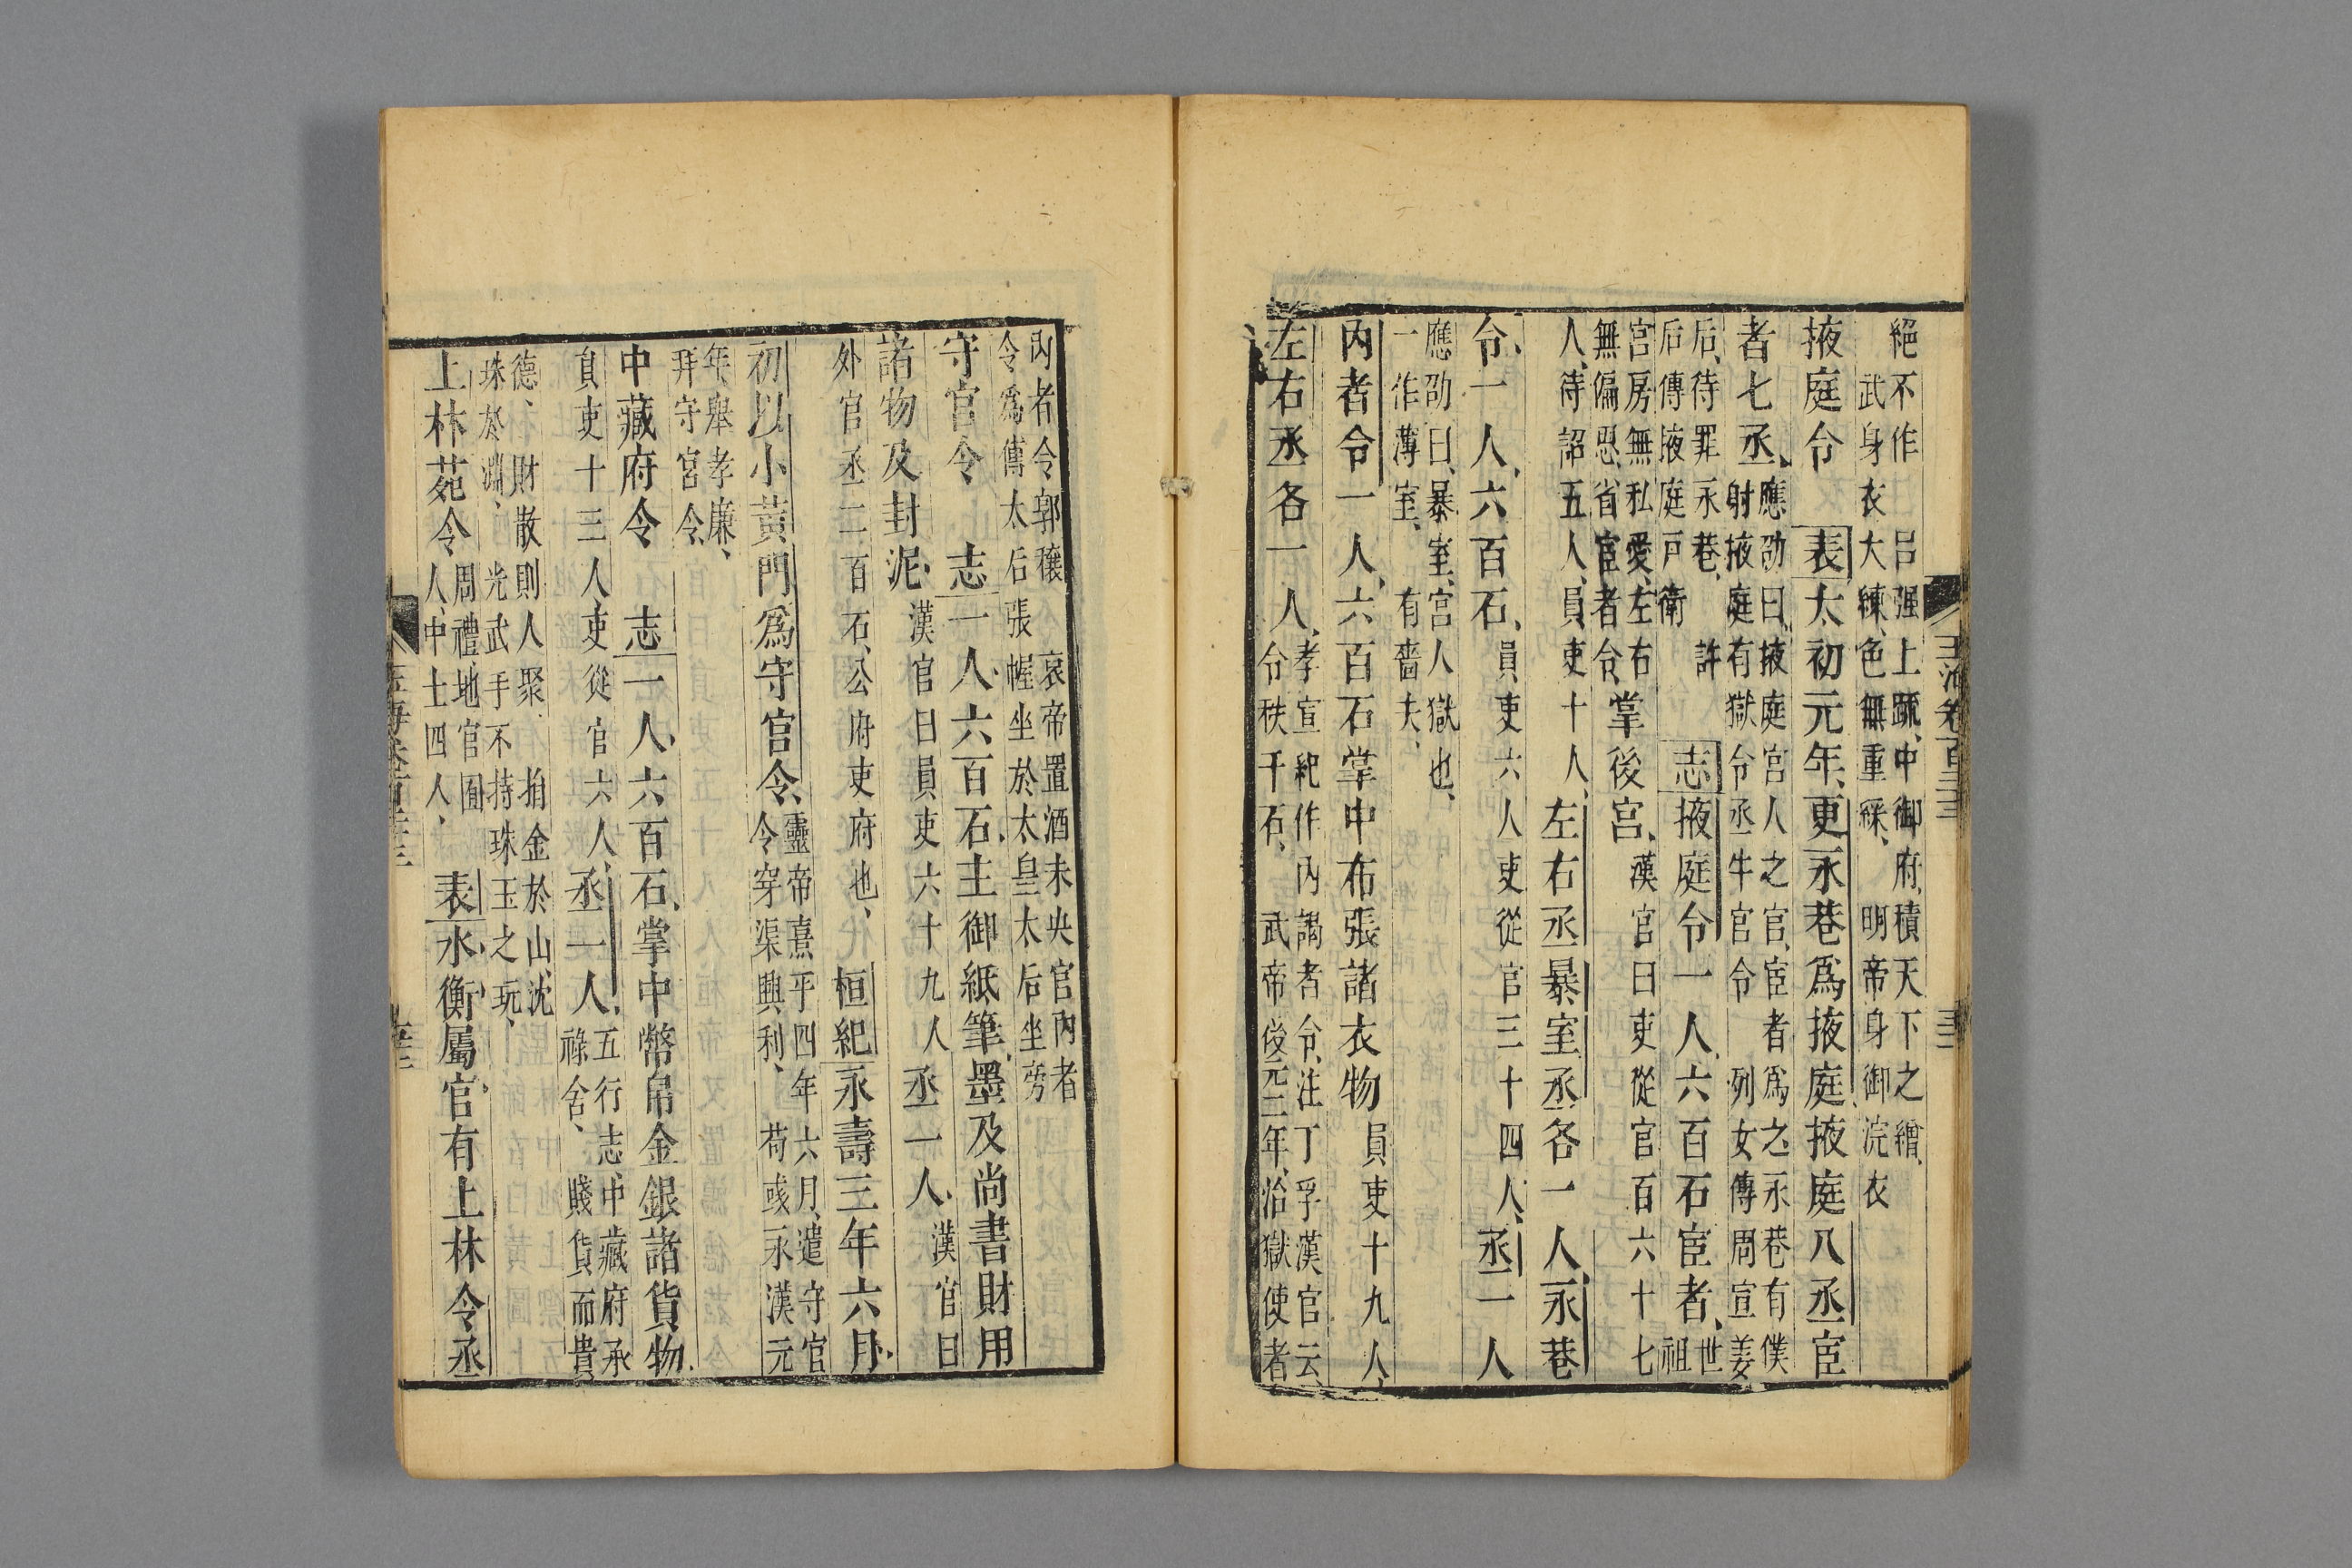 絕不作　呂强上䟽中御府積天下之繒
武身衣大練色無重綵　明帝身御浣衣
掖庭令　表太初元年更永巷爲掖庭掖庭八丞宦
者七丞
應劭曰掖庭宫人之官宦者爲之永巷有僕
射掖庭有獄令丞牛官令　列女傳周宣姜
后待罪永巷　許
后傳掖庭戸衛
志掖庭令一人六百石宦者
世
祖
宫房無私愛左右
無偏恩省宦者令
掌後宫
漢官曰吏從官百六十七
人待詔五人員吏十人
左右丞暴室丞各一人永巷
令一人六百石
員吏六人吏從官三十四人
丞一人
應劭曰暴室宫人獄也
一作薄室　有嗇夫
内者令一人六百石掌中布張諸衣物
員吏十九人
左右丞各一人
孝宣紀作内謁者令注丁孚漢官云
令秩千石　武帝後元二年治獄使者
内者令郭穰　哀帝置酒未央宫内者
令爲傅太后張幄坐於太皇太后坐旁
守宫令　志一人六百石主御紙筆墨及尚書財用
諸物及封泥
漢官曰員吏六十九人
丞一人
漢官曰
外官丞二百石公府吏府也
桓紀永壽三年六月
初以小黄門爲守宫令
靈帝熹平四年六月遣守宫
令穿渠興利　荀彧永漢元
年舉孝廉
拜守宫令
中藏府令　志一人六百石掌中幣帛金銀諸貨物
員吏十三人吏從官六人
丞一人
五行志中藏府承
祿舍　賤貨而貴
德　財散則人聚　捐金於山沈
珠於淵　光武手不持珠玉之玩
上林苑令
周禮地官囿
人中士四人
表水衡屬官有上林令丞
玉海卷百二三